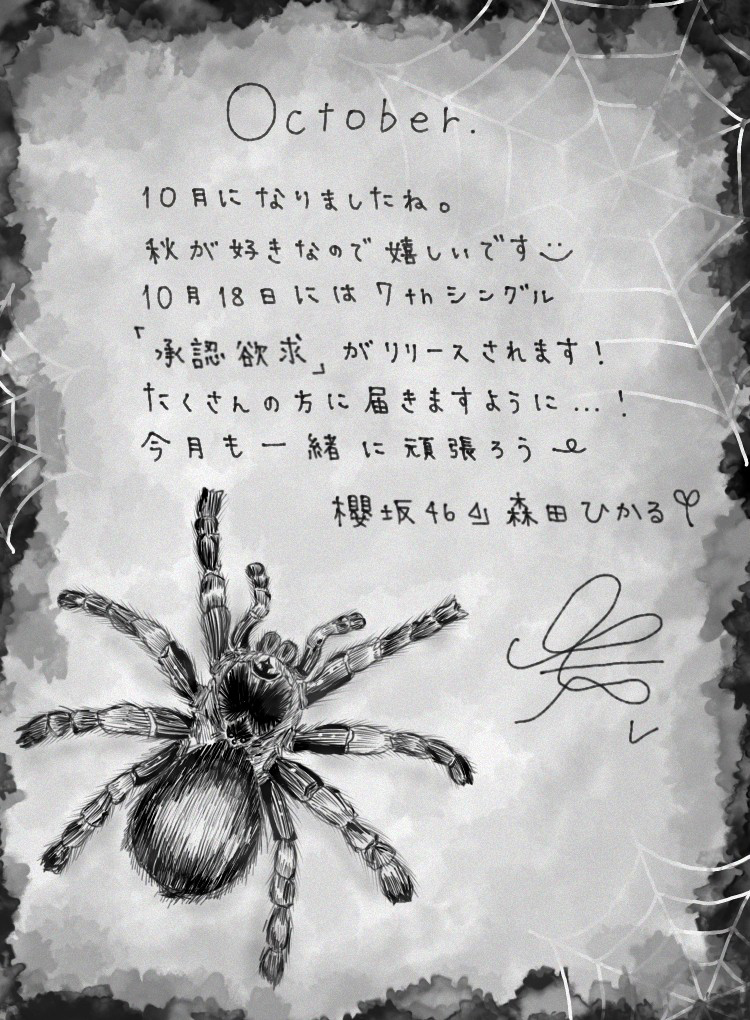 October.
10月になりましたね。
秋が好きなので嬉しいです
10月18日には7thシングル
「承認欲求」がリリースされます!
たくさんの方に届きますように...!
今月も一緒に頑張ろう
櫻坂46 森田ひかる